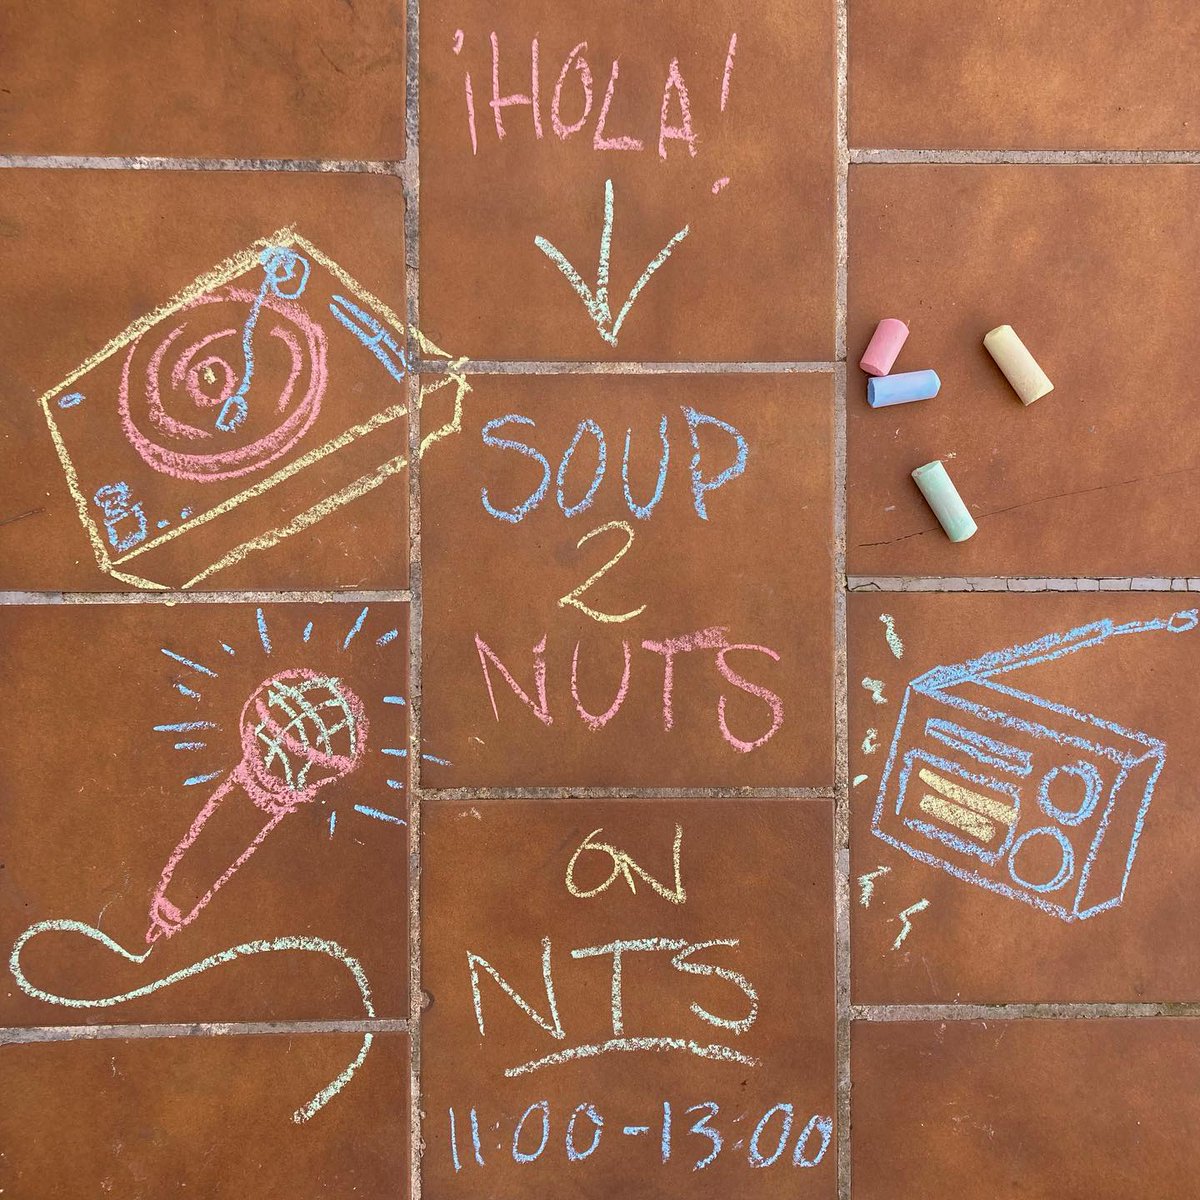 ¡HOLA!
SOUP
2
NUTS
ON
NTS
11:00-13:00